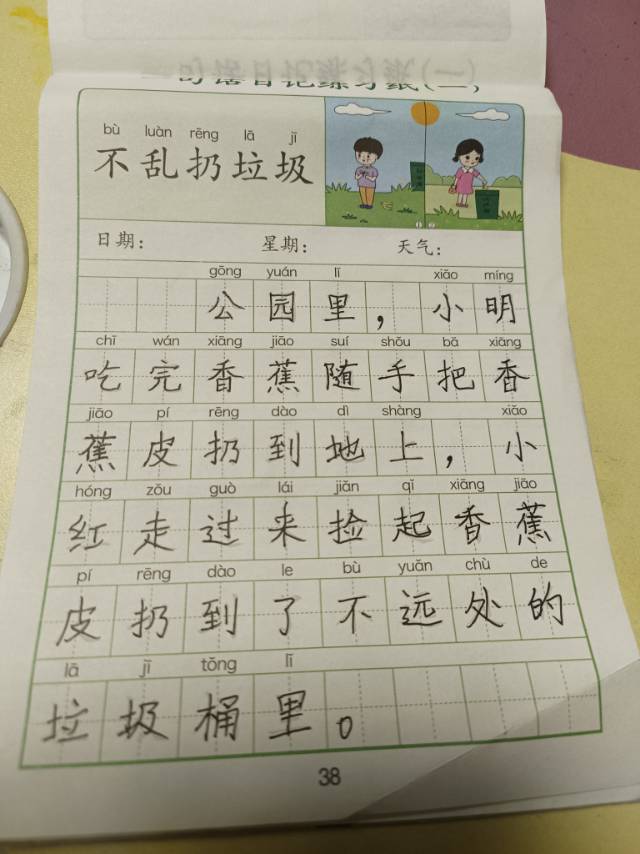 句话日记练习纸(一)
bù luàn rēng lā jī
不乱扔垃圾
日期： 星期： 天气：
gōng yuán lǐ xiǎo míng
公园里，小明
chī wán xiāng jiāo suí shǒu bǎ xiāng
吃完香蕉随手把香
jiāo pí rēng dào dì shàng xiǎo
蕉皮扔到地上，小
hóng zǒu guò lái jiǎn qǐ xiāng jiāo
红走过来捡起香蕉
pí rēng dào le bù yuǎn chù de
皮扔到了不远处的
lā jī tǒng lǐ
垃圾桶里。
38